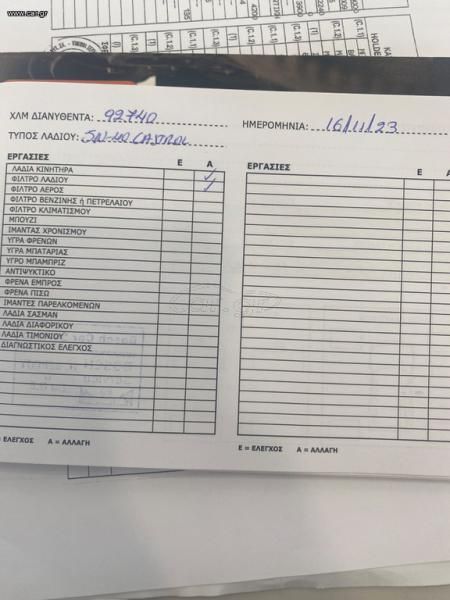 www.car.gr
ΧΛΜ ΔΙΑΝΥΘΕΝΤΑ: 92740
ΗΜΕΡΟΜΗΝΙΑ: 16/11/23
ΤΥΠΟΣ ΛΑΔΙΟΥ: 5W-40 CASTROL
ΕΡΓΑΣΙΕΣ Ε Α
ΛΑΔΙΑ ΚΙΝΗΤΗΡΑ ✓
ΦΙΛΤΡΟ ΛΑΔΙΟΥ ✓
ΦΙΛΤΡΟ ΑΕΡΟΣ
ΦΙΛΤΡΟ ΒΕΝΖΙΝΗΣ ή ΠΕΤΡΕΛΑΙΟΥ
ΦΙΛΤΡΟ ΚΛΙΜΑΤΙΣΜΟΥ
ΜΠΟΥΖΙ
ΙΜΑΝΤΑΣ ΧΡΟΝΙΣΜΟΥ
ΥΓΡΑ ΦΡΕΝΩΝ
ΥΓΡΑ ΜΠΑΤΑΡΙΑΣ
ΥΓΡΟ ΜΠΑΜΠΡΙΖ
ΑΝΤΙΨΥΚΤΙΚΟ
ΦΡΕΝΑ ΕΜΠΡΟΣ
ΦΡΕΝΑ ΠΙΣΩ
ΙΜΑΝΤΕΣ ΠΑΡΕΛΚΟΜΕΝΩΝ
ΛΑΔΙΑ ΣΑΣΜΑΝ
ΛΑΔΙΑ ΔΙΑΦΟΡΙΚΟΥ
ΛΑΔΙΑ ΤΙΜΟΝΙΟΥ
ΔΙΑΓΝΩΣΤΙΚΟΣ ΕΛΕΓΧΟΣ
= ΕΛΕΓΧΟΣ Α = ΑΛΛΑΓΗ
ΕΡΓΑΣΙΕΣ Ε Α
Ε = ΕΛΕΓΧΟΣ Α = ΑΛΛΑΓΗ